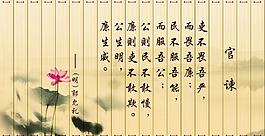 官谏
吏不畏吾严，
而畏吾廉；
民不服吾能，
而服吾公；
公则民不敢慢，
廉则吏不敢欺。
公生明，
廉生威。
——（明）郭允礼